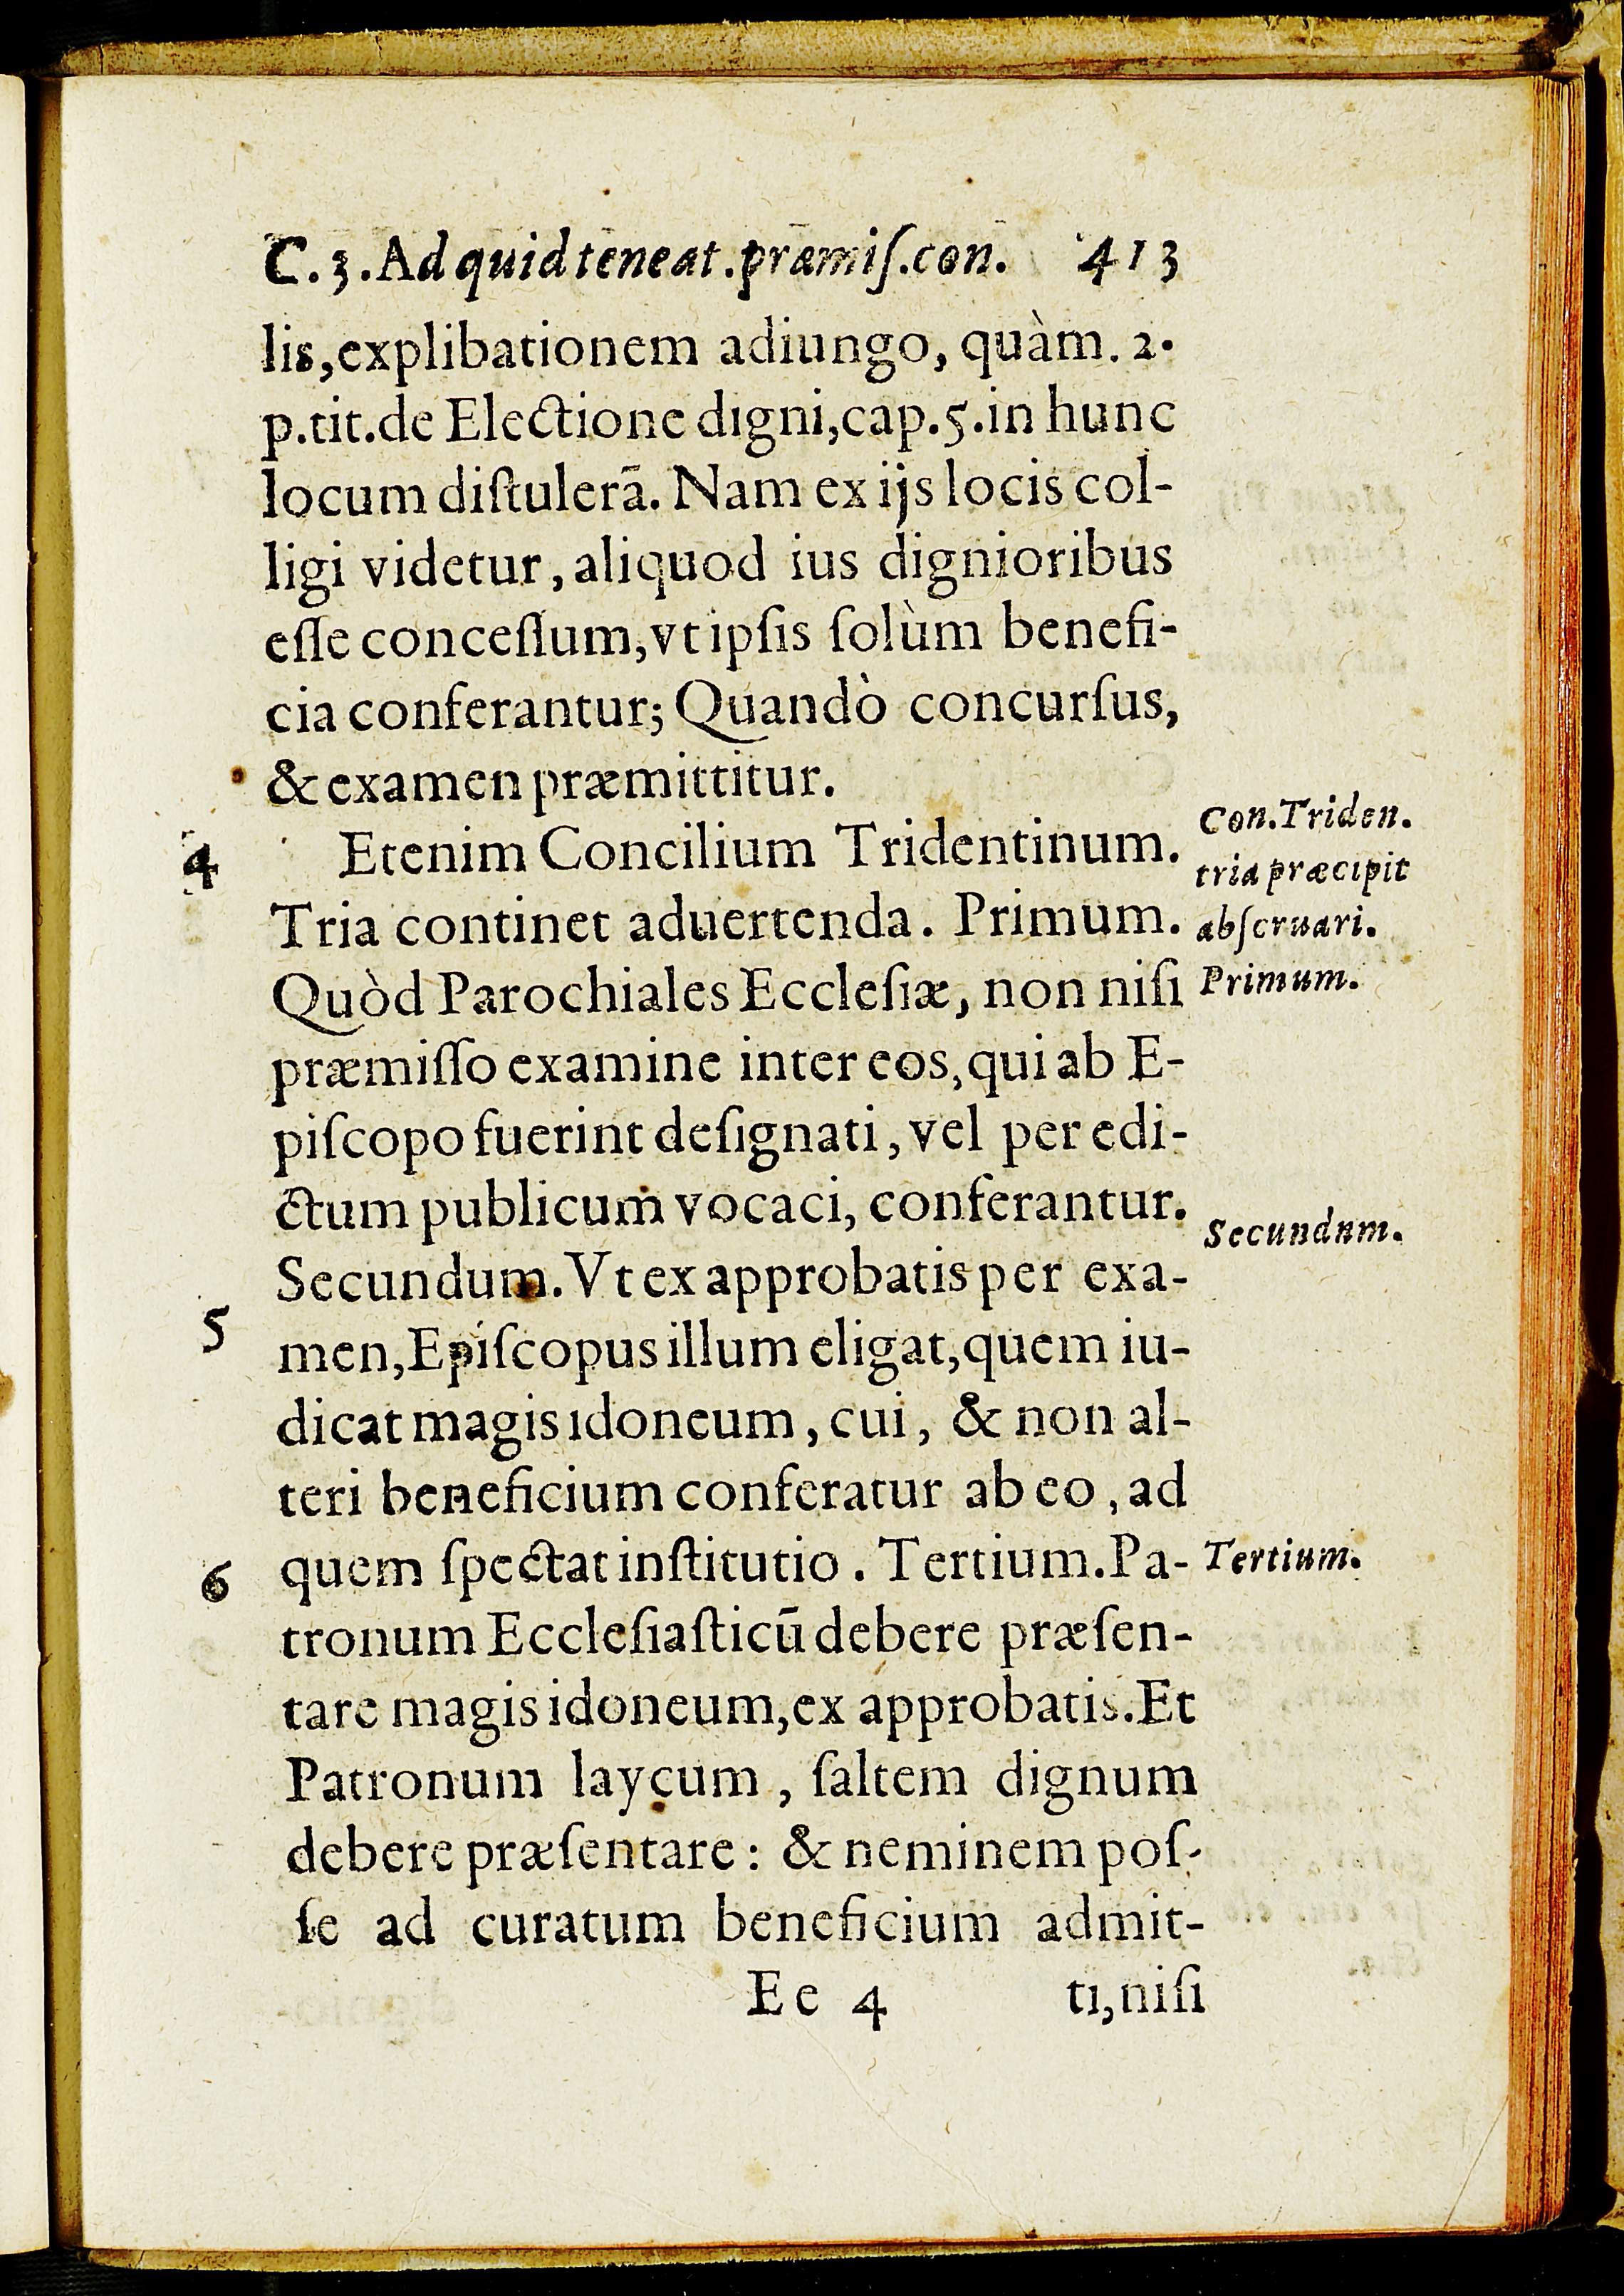 C. 3. Ad quid teneat. præmiſ. con. 413
lis, explibationem adiungo, quàm. 2.
p. tit. de Electione digni, cap. 5. in hunc
locum diſtulerā. Nam ex ijs locis col-
ligi videtur, aliquod ius dignioribus
eſſe conceſſum, vt ipſis ſolùm benefi-
cia conferantur; Quandò concurſus,
& examen præmittitur.
4 Etenim Concilium Tridentinum.
Con. Triden.
tria præcipit
abſeruari.
Tria continet aduertenda. Primum.
Quòd Parochiales Eccleſiæ, non niſi
Primum.
præmiſſo examine inter eos, qui ab E-
piſcopo fuerint deſignati, vel per edi-
ctum publicum vocaci, conferantur.
Secundnm.
Secundum. Vt ex approbatis per exa-
5 men, Epiſcopus illum eligat, quem iu-
dicat magis idoneum, cui, & non al-
teri beneficium conferatur ab eo, ad
6 quem ſpectat inſtitutio. Tertium. Pa-
Tertium.
tronum Eccleſiaſticū debere præſen-
tare magis idoneum, ex approbatis. Et
Patronum laycum, ſaltem dignum
debere præſentare: & neminem poſ-
ſe ad curatum beneficium admit-
Ee 4 ti, niſi